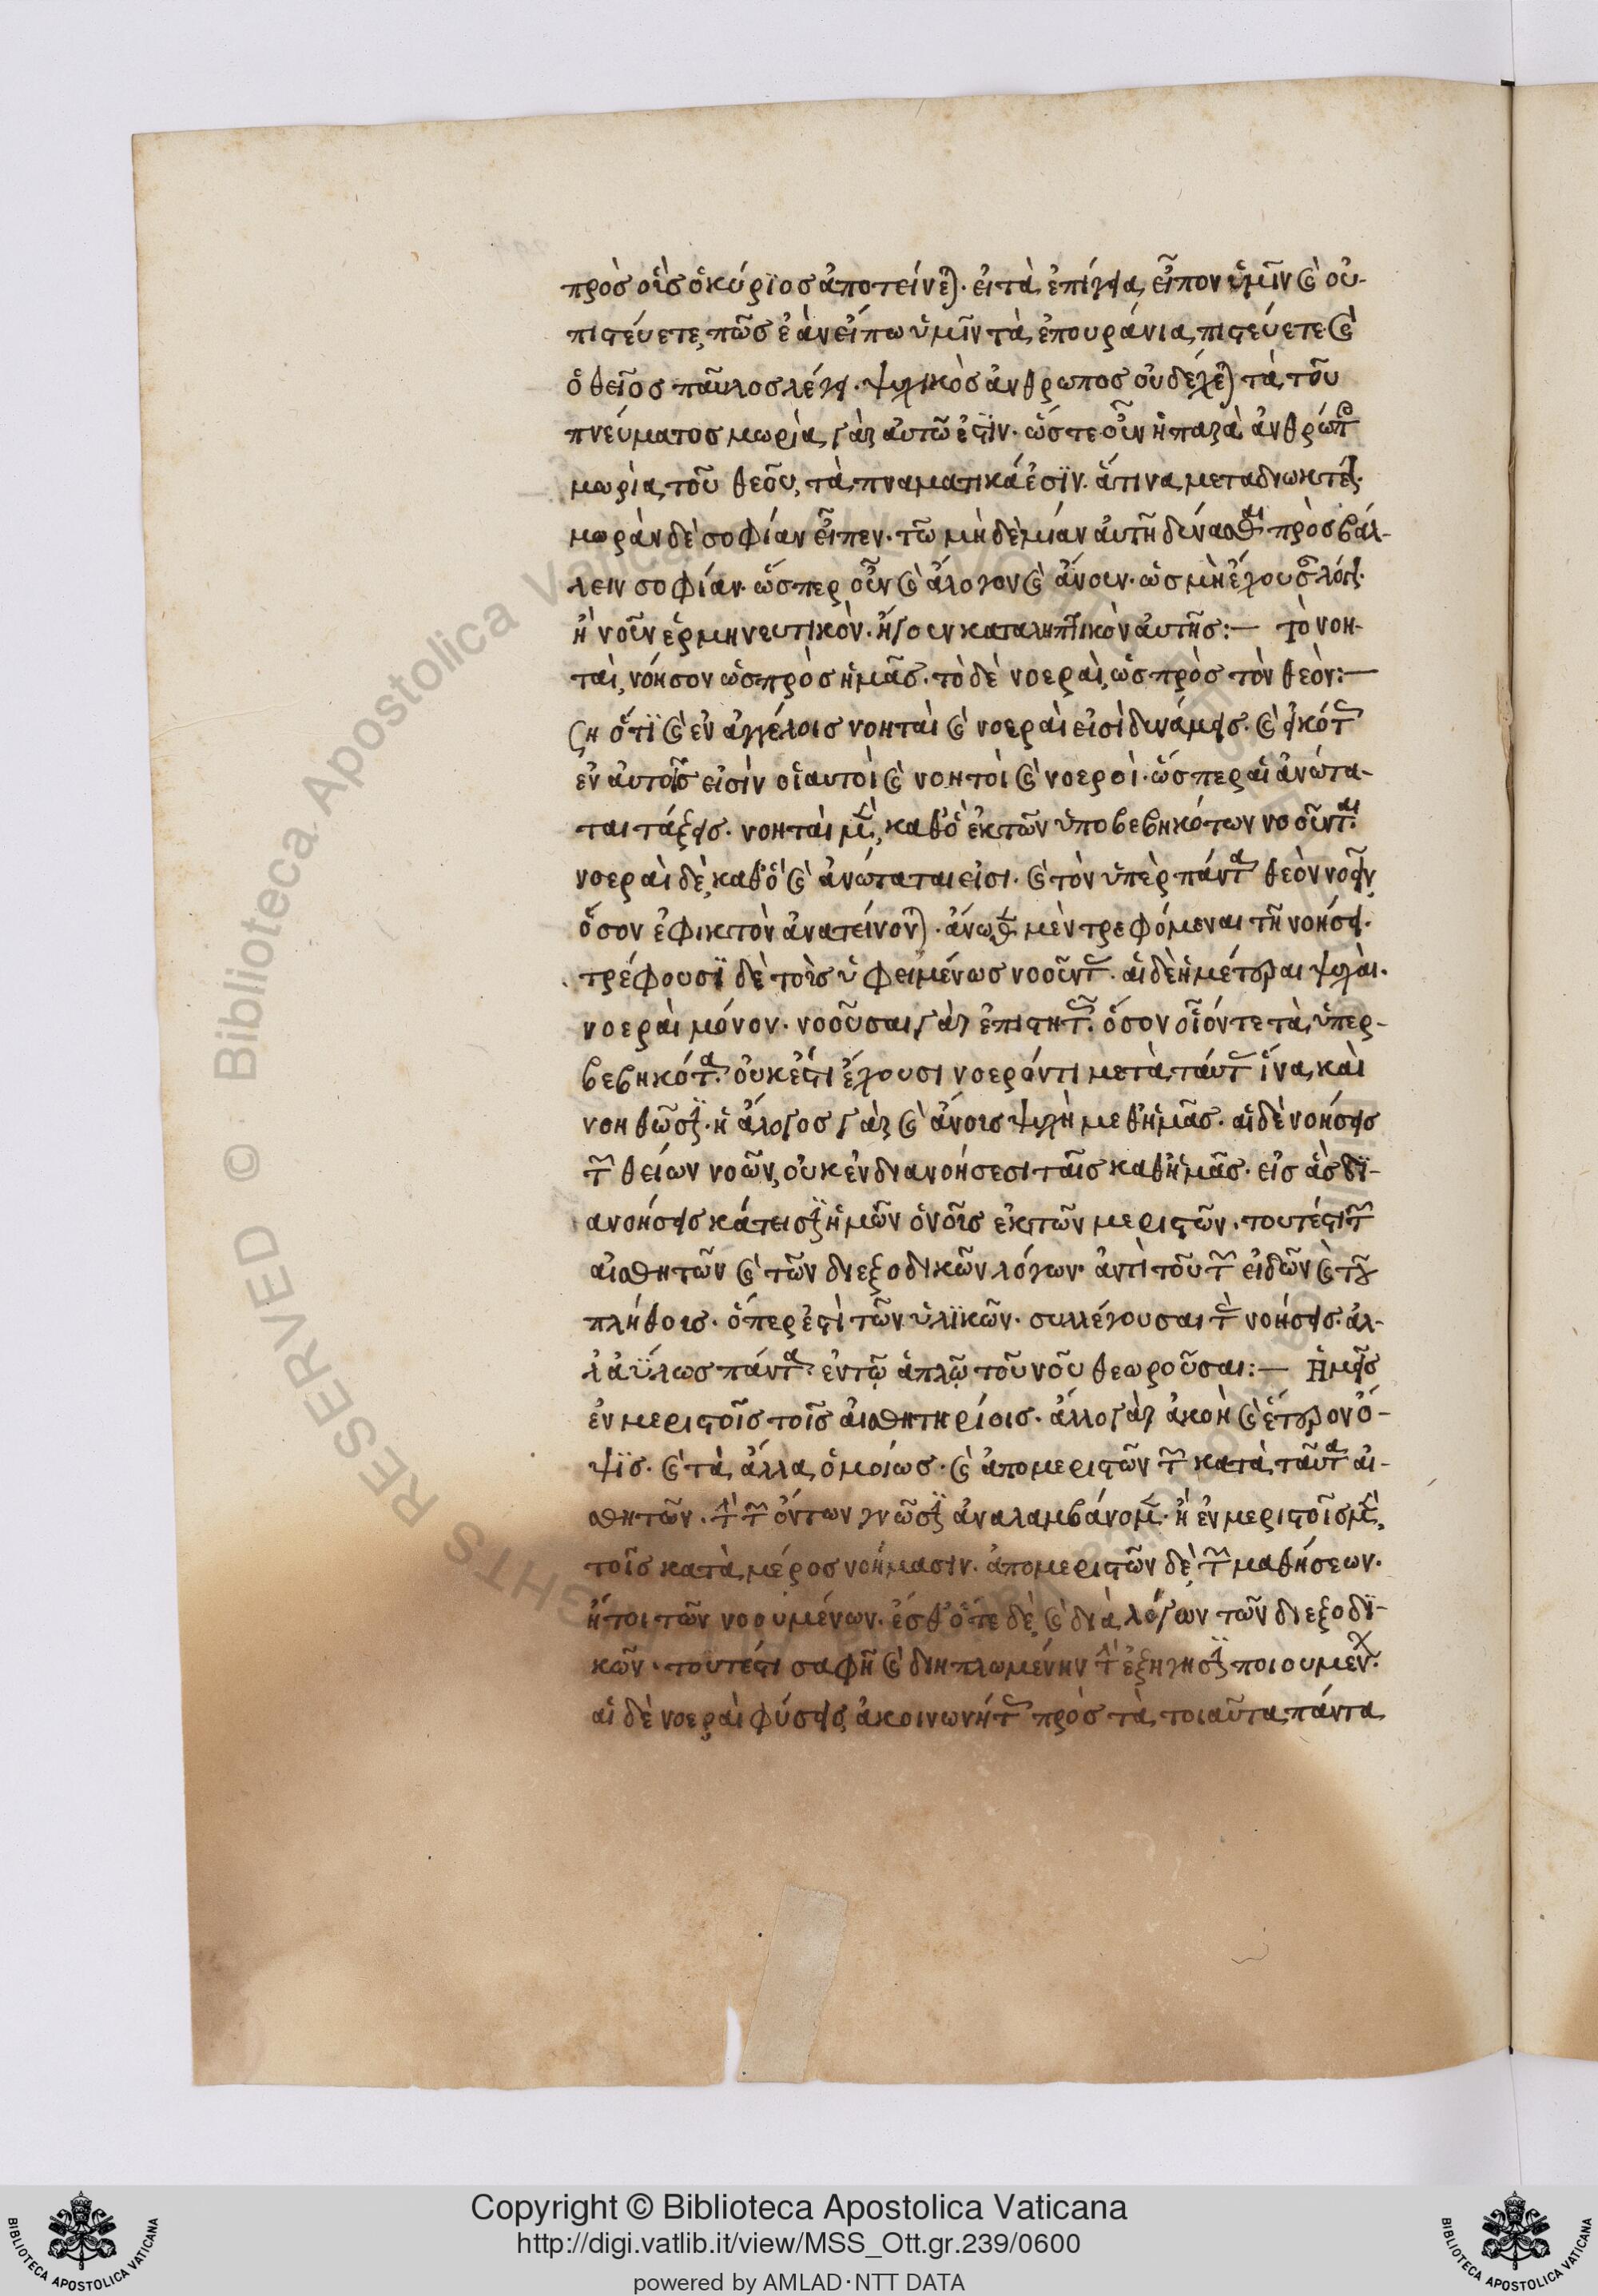 πρὸς οἷς ὁ κύριος ἀποτείνεται. εἰ τὰ ἐπίγεια εἶπον ὑμῖν καὶ οὐ
πιστεύετε, πῶς ἐὰν εἴπω ὑμῖν τὰ ἐπουράνια πιστεύετε καὶ
ὁ θεῖος παῦλος λέγει. ψυχικὸς ἄνθρωπος οὐ δέχεται τὰ τοῦ
πνεύματος μωρία γὰρ αὐτῶ ἐστϊν. ὥστε οὖν ἡ παρὰ ἀνθρώποις
μωρία τοῦ θεοῦ, τὰ πναματικά εἰσϊν. ἅτινα μεταδιωκτέον.
μωρὰν δὲ σοφίαν εἶπεν. τῶ μὴ δὲ μίαν αὐτῆ δύνασθαι προσβάλ-
λειν σοφίαν. ὥσπερ οὖν καὶ ἄλογον καὶ ἄνουν. ὡς μὴ ἔχουσαν λόγον.
ἢ νοῦν ἑρμηνευτικὸν. ἤγουν καταληπτικὸν αὐτῆς:— Τὸ νοη-
ταὶ, νόησον ὡς πρὸς ἡμᾶς. τὸ δὲ νοεραὶ, ὡς πρὸς τὸν θεὸν:—
ση ὅτϊ καὶ ἐν ἀγγέλοις νοηταὶ καὶ νοεραὶ εἰσὶ δυνάμεις. καὶ εἰκότως
ἐν αὐτοῖς εἰσὶν οἱ αυτοὶ καὶ νοητοὶ καὶ νοεροὶ. ὥσπερ αἱ ἀνώτα-
ται τάξεις. νοηταὶ μὲν, καθὸ ἐκ τῶν ὑποβεβηκότων νοοῦνται.
νοεραὶ δὲ, καθὸ καὶ ἀνώταται εἰσι. καὶ τὸν ὑπὲρ πάντα θεὸν νοεῖν,
ὅσον ἐφικτὸν ἀνατείνονται. ἄνωθεν μὲν τρεφόμεναι τῆ νοήσει.
τρέφουσϊ δὲ τοὺς ὑφειμένως νοοῦντας. αἱ δὲ ἡμέτεραι ψυχαὶ.
νοεραὶ μόνον. νοοῦσαι γὰρ ἐπιστητῶς. ὅσον οἷόν τε τὰ ὑπερ-
βεβηκότα. οὐκέτι ἔχουσι νοερόν τι μετὰ ταύτας ἵνα καὶ
νοηθῶσιν. ἡ ἄλογος γὰρ καὶ ἄνους ψυχὴ μεθ' ἡμᾶς. αἱ δὲ νοήσεις
τῶν θείων νοῶν, οὐκ ἐν διανοήσεσι ταῖς καθ' ἡμᾶς. εἰς ἃς δϊ-
ανοήσεις κάτεισιν ἡμῶν ὁ νοῦς ἐκ τῶν μεριστῶν. τουτέστι τῶν
αἰσθητῶν καὶ τῶν διεξοδικῶν λόγων. ἀντὶ τοῦ τῶν εἰδῶν καὶ τοῦ
πλήθους. ὅπερ ἐστὶ τῶν ὑλϊκῶν. συλλέγουσαι τὰς νοήσεις. ἀλ-
λ' ἀΰλως πάντα ἐν τῷ ἁπλῷ τοῦ νοῦ θεωροῦσαι:— Ἡμεῖς
ἐν μεριστοῖς τοῖς αἰσθητηρίοις. ἄλλο γὰρ ἀκοὴ καὶ ἕτερον ὄ-
ψϊς. καὶ τὰ ἄλλα ὁμοίως. καὶ ἀπὸ μεριστῶν τῶν κατὰ ταῦτα αἰ-
σθητῶν. τὴν τῶν ὄντων γνῶσιν ἀναλαμβάνομεν. ἢ ἐν μεριστοῖς μὲν,
τοῖς κατὰ μέρος νοήμασιν. ἀπὸ μεριστῶν δὲ, τῶν μαθήσεων.
ἤτοι τῶν νοουμένων. ἔσθ' ὅτε δὲ, καὶ διὰ λόγων τῶν διεξοδϊ-
κῶν. τουτέστι σαφῆ καὶ διηπλωμένην τὴν ἐξήγησιν ποιουμεν.
αἱ δὲ νοεραὶ φύσεις, ἀκοινωνήτως πρὸς τὰ τοιαῦτα πάντα
Copyright © Biblioteca Apostolica Vaticana
http://digi.vatlib.it/view/MSS_Ott.gr.239/0600
powered by AMLAD·NTT DATA